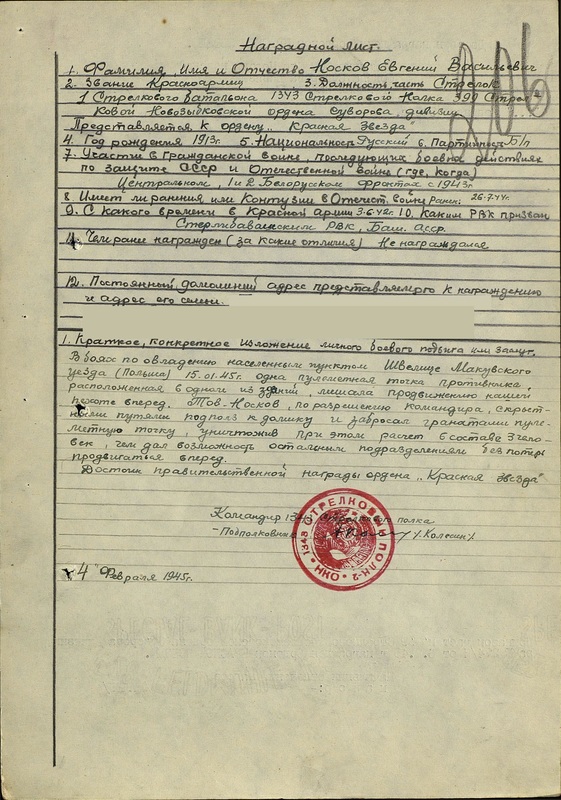 Наградной лист.
206
1. Фамилия, Имя и Отчество Носков Евгений Васильевич
2. Звание Красноармеец 3. Должность, часть Стрелок
1 Стрелкового Батальона 1343 Стрелкового Полка 399 Стрел
ковой Новозыбковской ордена Суворова, дивизии
Представляется к ордену „Красная Звезда"
4. Год рождения 1913г. 5. Национальность Русский 6. Партийность Б/п
7. Участие в Гражданской войне, последующих боевых действиях
по защите СССР и Отечественной войне (где, когда)
Центральном, 1 и 2 Белорусском фронтах с 1943г.
8. Имеет ли ранения или контузии в Отечеств. войне Ранен. 26.7.44г.
9. С какого времени в Красной армии 3.6.42г. 10. Каким РВК призван
Стерлибашевским РВК, Баш. асср.
11. Чем ранее награжден (за какие отличия) Не награждался
12. Постоянный, домашний адрес представляемого к награждению
и адрес его семьи.
1. Краткое, конкретное изложение личного боевого подвига или заслуг.
В боях по овладению населенным пунктом Швелице Маковского
уезда (Польша) 15.01.45г. одна пулеметная точка противника,
расположенная в одной из зданий, мешала продвижению нашей
пехоте вперед. Тов. Носков, по разрешению командира, скрыт-
ными путями подполз к домику и забросал гранатами пуле-
метную точку, уничтожив при этом расчет в составе 3 чело-
век, чем дал возможность остальным подразделениям без потерь
продвигаться вперед.
Достоин правительственной награды ордена „Красная звезда"
Командир 1343 Стрелкового полка
- Подполковник /Колесин/
1343 СТРЕЛКОВЫЙ ПОЛК-2 • НКО •
4 Февраля 1945г.